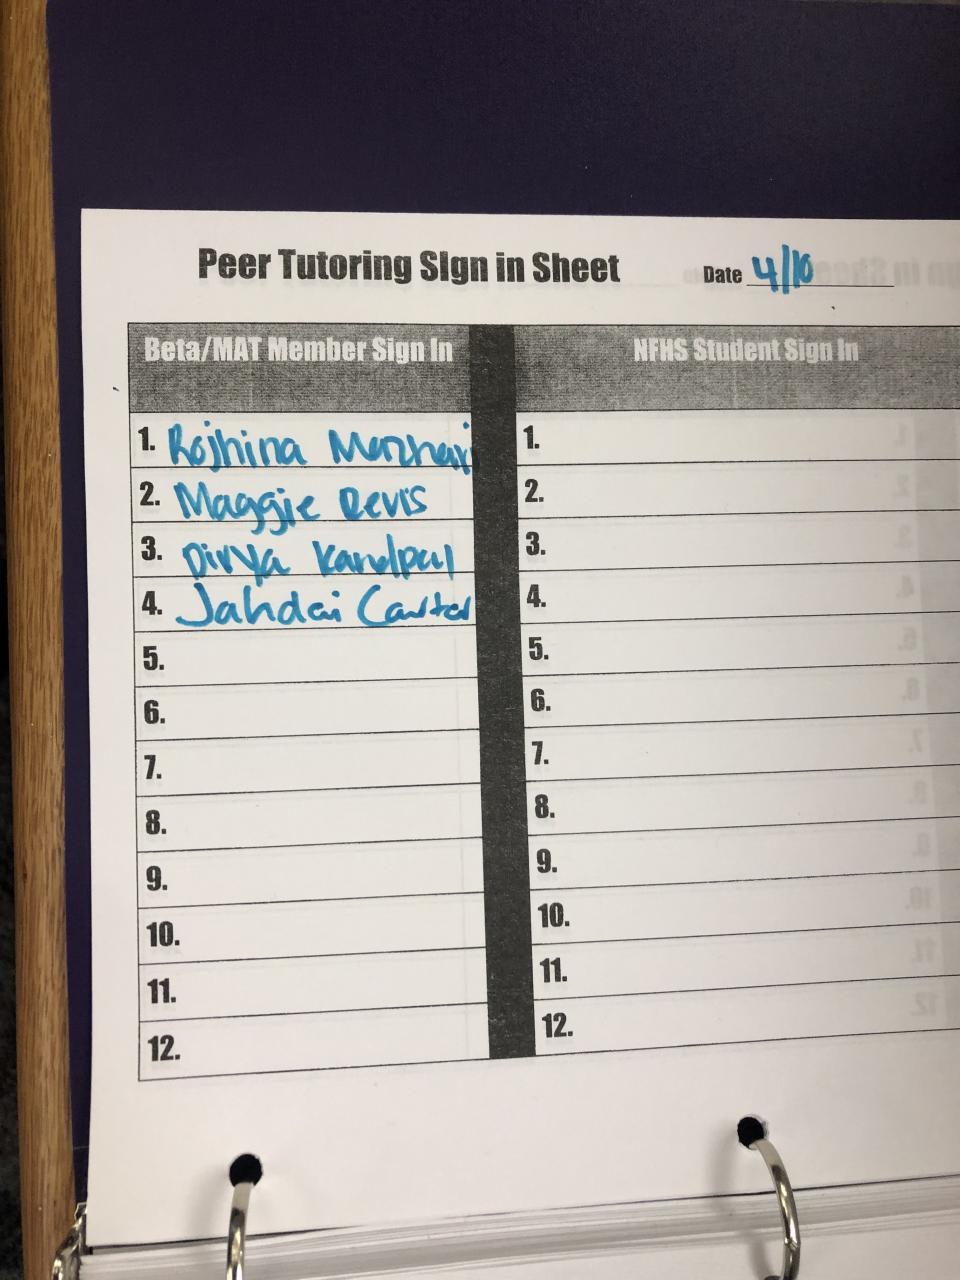 Peer Tutoring SIgn in Sheet Date 4/10
Beta/MAT Member Sign In NFHS Student Sign In
1. Rojhina Mazhari 1.
2. Maggie Revis 2.
3. Divya Kandpal 3.
4. Jahdai Carter 4.
5. 5.
6. 6.
7. 7.
8. 8.
9. 9.
10. 10.
11. 11.
12. 12.